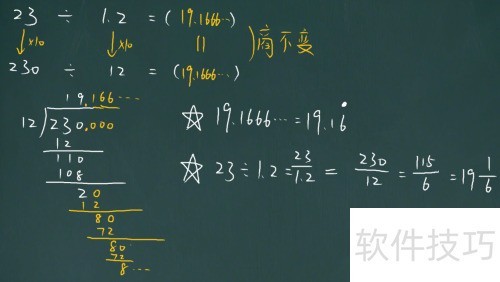 23 ÷ 1.2 = (19.1666…)
↓×10 ↓×10 || ) 商不变
230 ÷ 12 = (19.1666…)
19.166…
12)230.000
12
110
108
20
12
80
72
80
72
8…
☆ 19.1666… = 19.16̇
☆ 23÷1.2 = 23/1.2 = 230/12 = 115/6 = 19 1/6
软件技巧